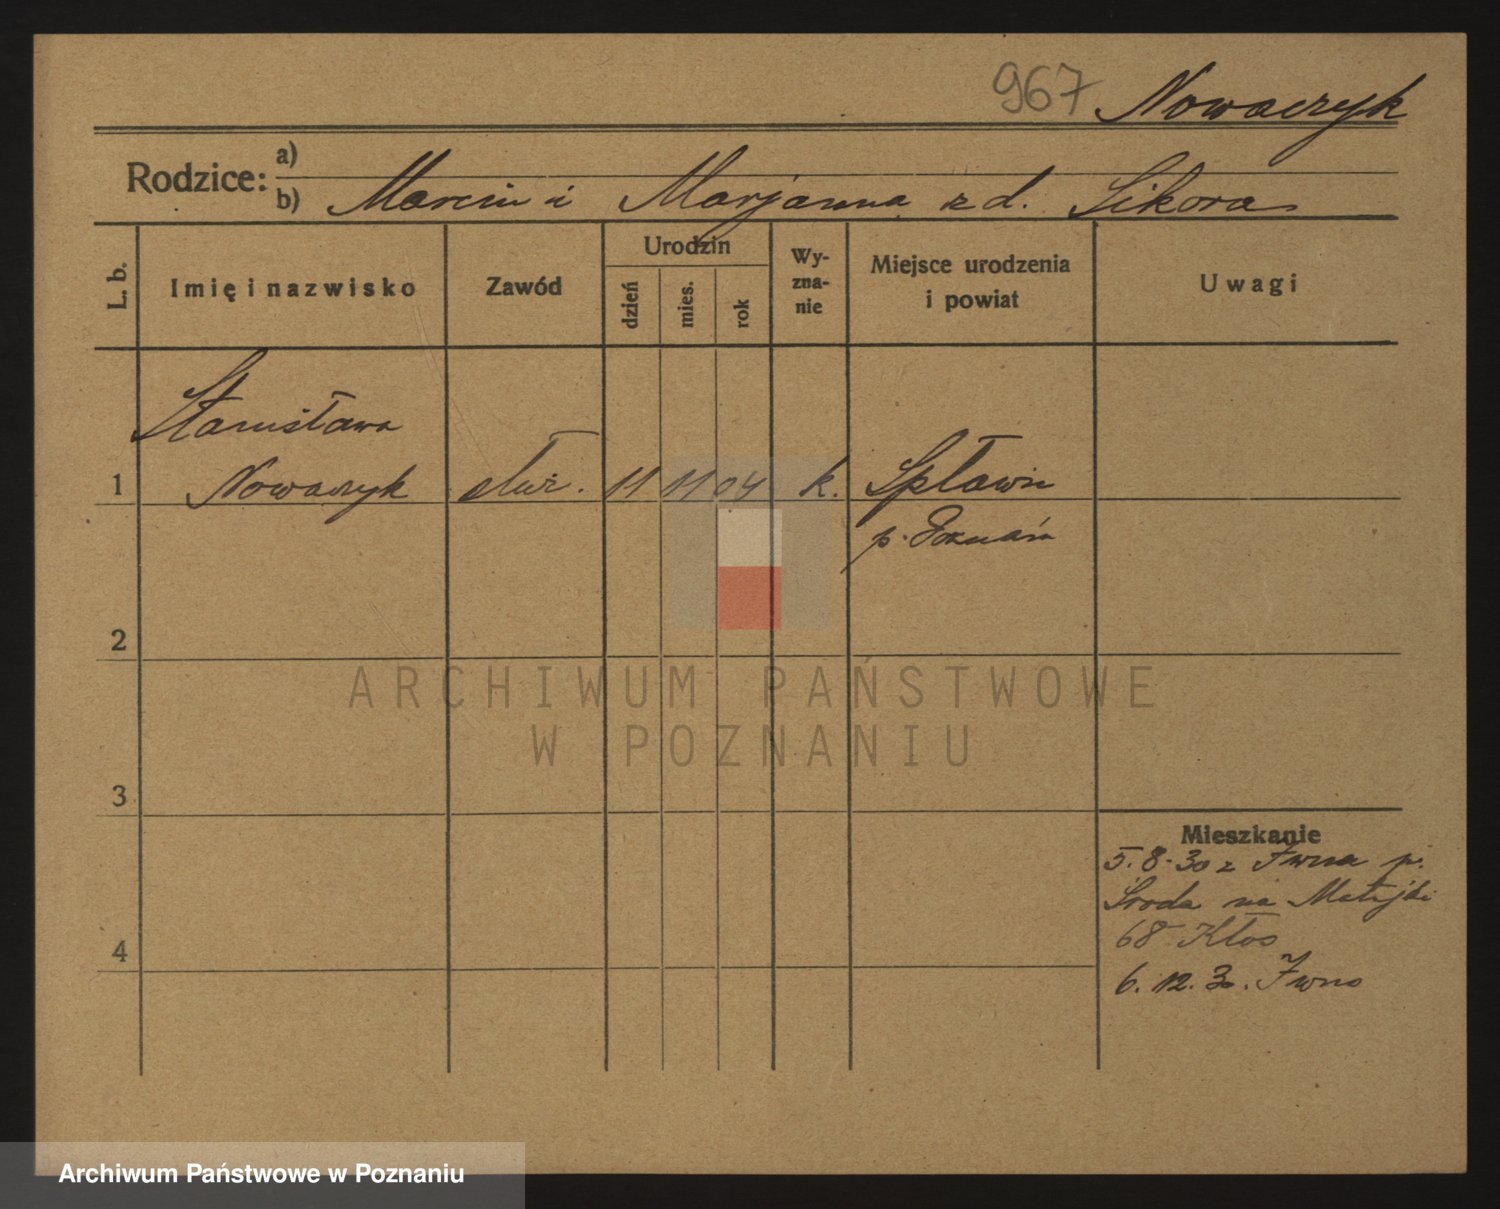 967 Nowaczyk
Rodzice:
a)
b) Marcin i Marjanna z d. Sikora
L. b.
Imię i nazwisko
Zawód
Urodzin
dzień
mies.
rok
Wy-
zna-
nie
Miejsce urodzenia
i powiat
Uwagi
Stanisława
1 Nowaczyk służ. 11 11 04 k. Spławie
p. Poznań
2
3
4
Mieszkanie
5.8.30 z Iwna p.
Środa na Matejki
68 Kłos
6.12.30. Iwno
ARCHIWUM PAŃSTWOWE
W POZNANIU
Archiwum Państwowe w Poznaniu